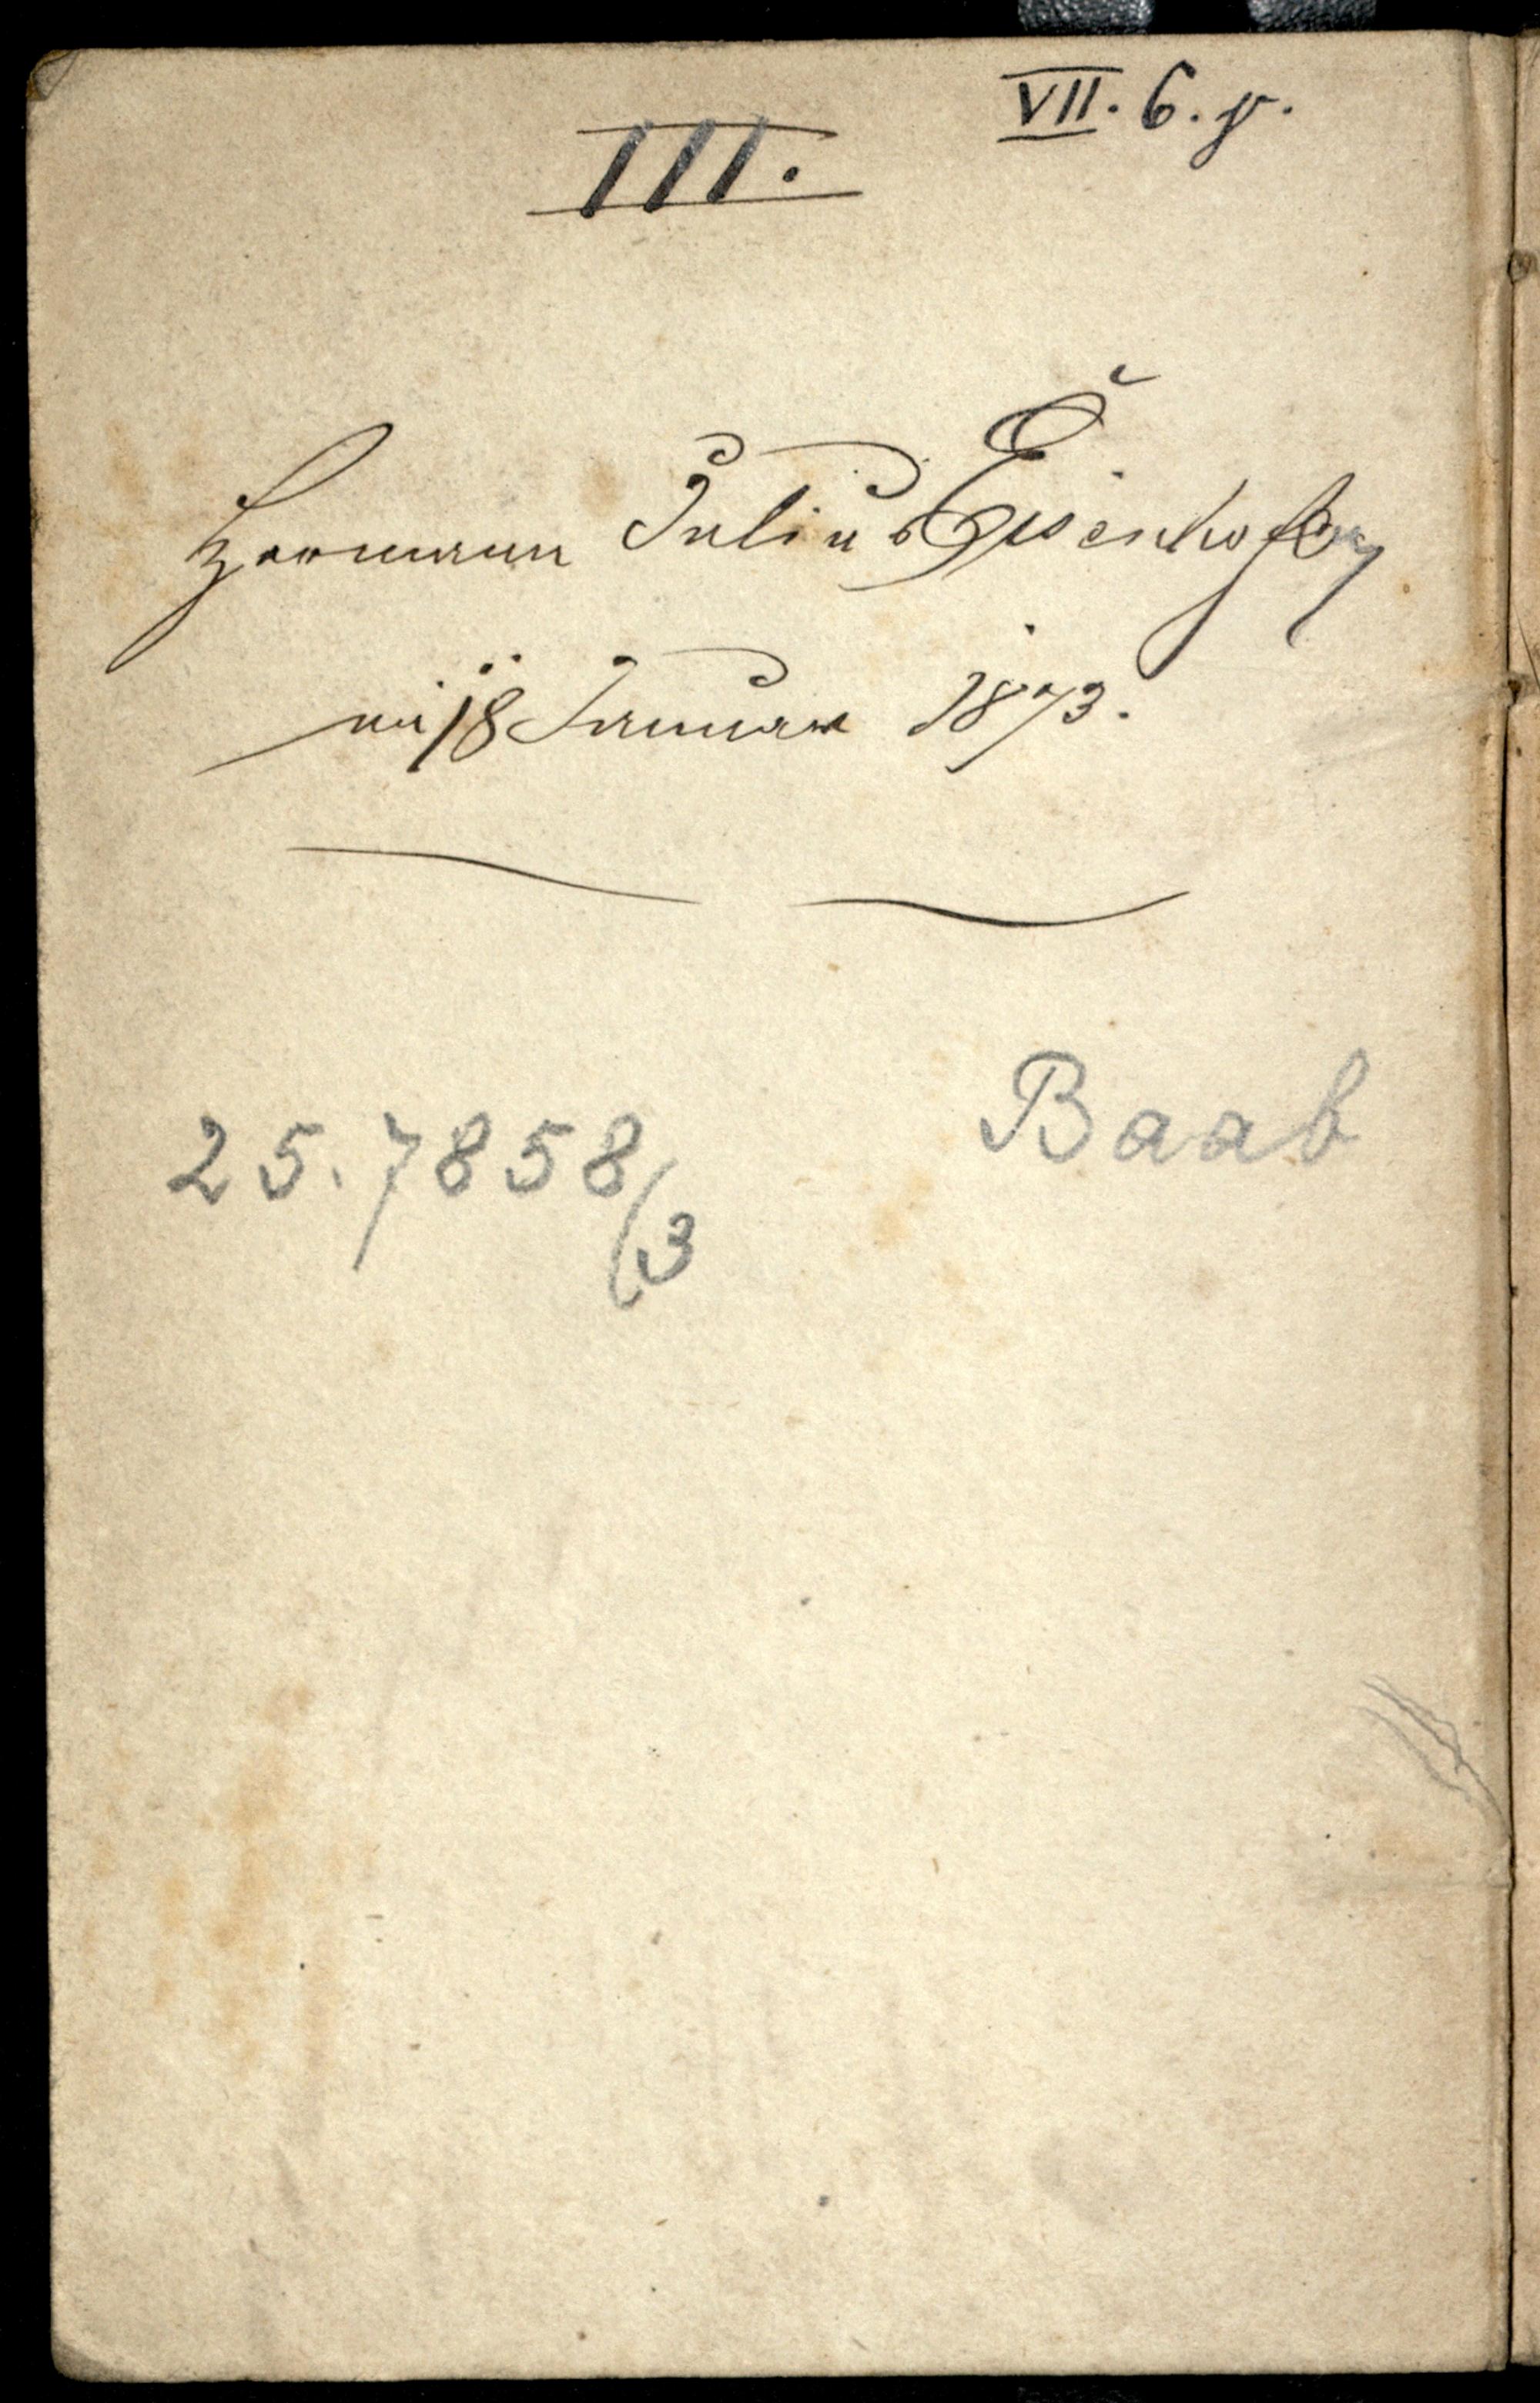 VII. 6. γ.
III.
Hermann Julius Eisenhofer
18 Januar 1873.
Baab
25.7858/3